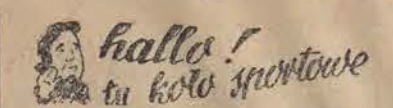 hallo!
tu koło sportowe